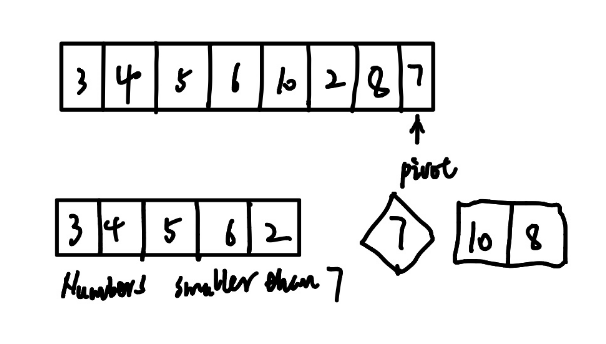 3 4 5 6 10 2 8 7
pivot
3 4 5 6 2 7 10 8
Numbers smaller than 7